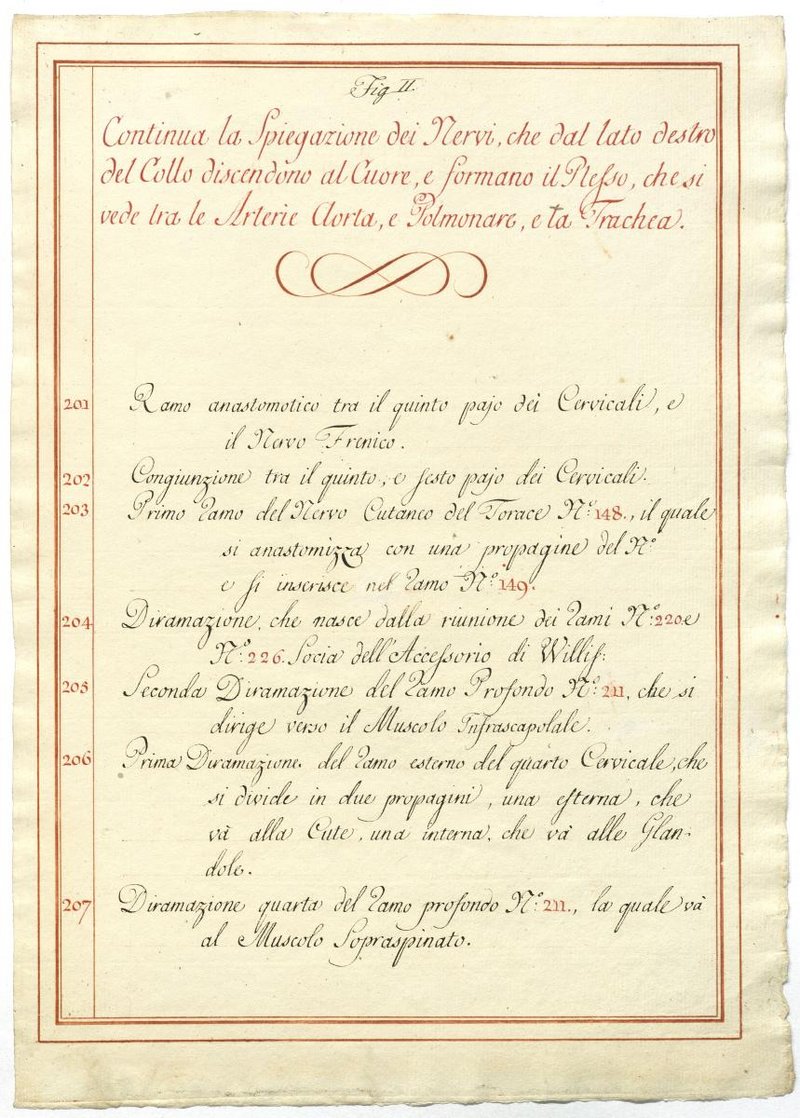 Fig II.
Continua la Spiegazione dei Nervi, che dal lato destro
del Collo discendono al Cuore, e formano il Plesso, che si
vede tra le Arterie Aorta, e Polmonare, e la Trachea.
201 Ramo anastomotico tra il quinto pajo dei Cervicali, e
il Nervo Frenico.
202 Congiunzione tra il quinto, e sesto pajo dei Cervicali.
203 Primo Ramo del Nervo Cutaneo del Torace N.º 148., il quale
si anastomizza con una propagine del N.º
e si inserisce nel Ramo N.º 149.
204 Diramazione, che nasce dalla riunione dei Rami N.º 220 e
N.º 226. Socia dell'Accessorio di Willis:
205 Seconda Diramazione del Ramo Profondo N.º 211, che si
dirige verso il Muscolo Infrascapolale.
206 Prima Diramazione del Ramo esterno del quarto Cervicale, che
si divide in due propagini, una esterna, che
và alla Cute, una interna, che và alle Glan-
dole.
207 Diramazione quarta del Ramo profondo N.º 211., la quale và
al Muscolo Sopraspinato.